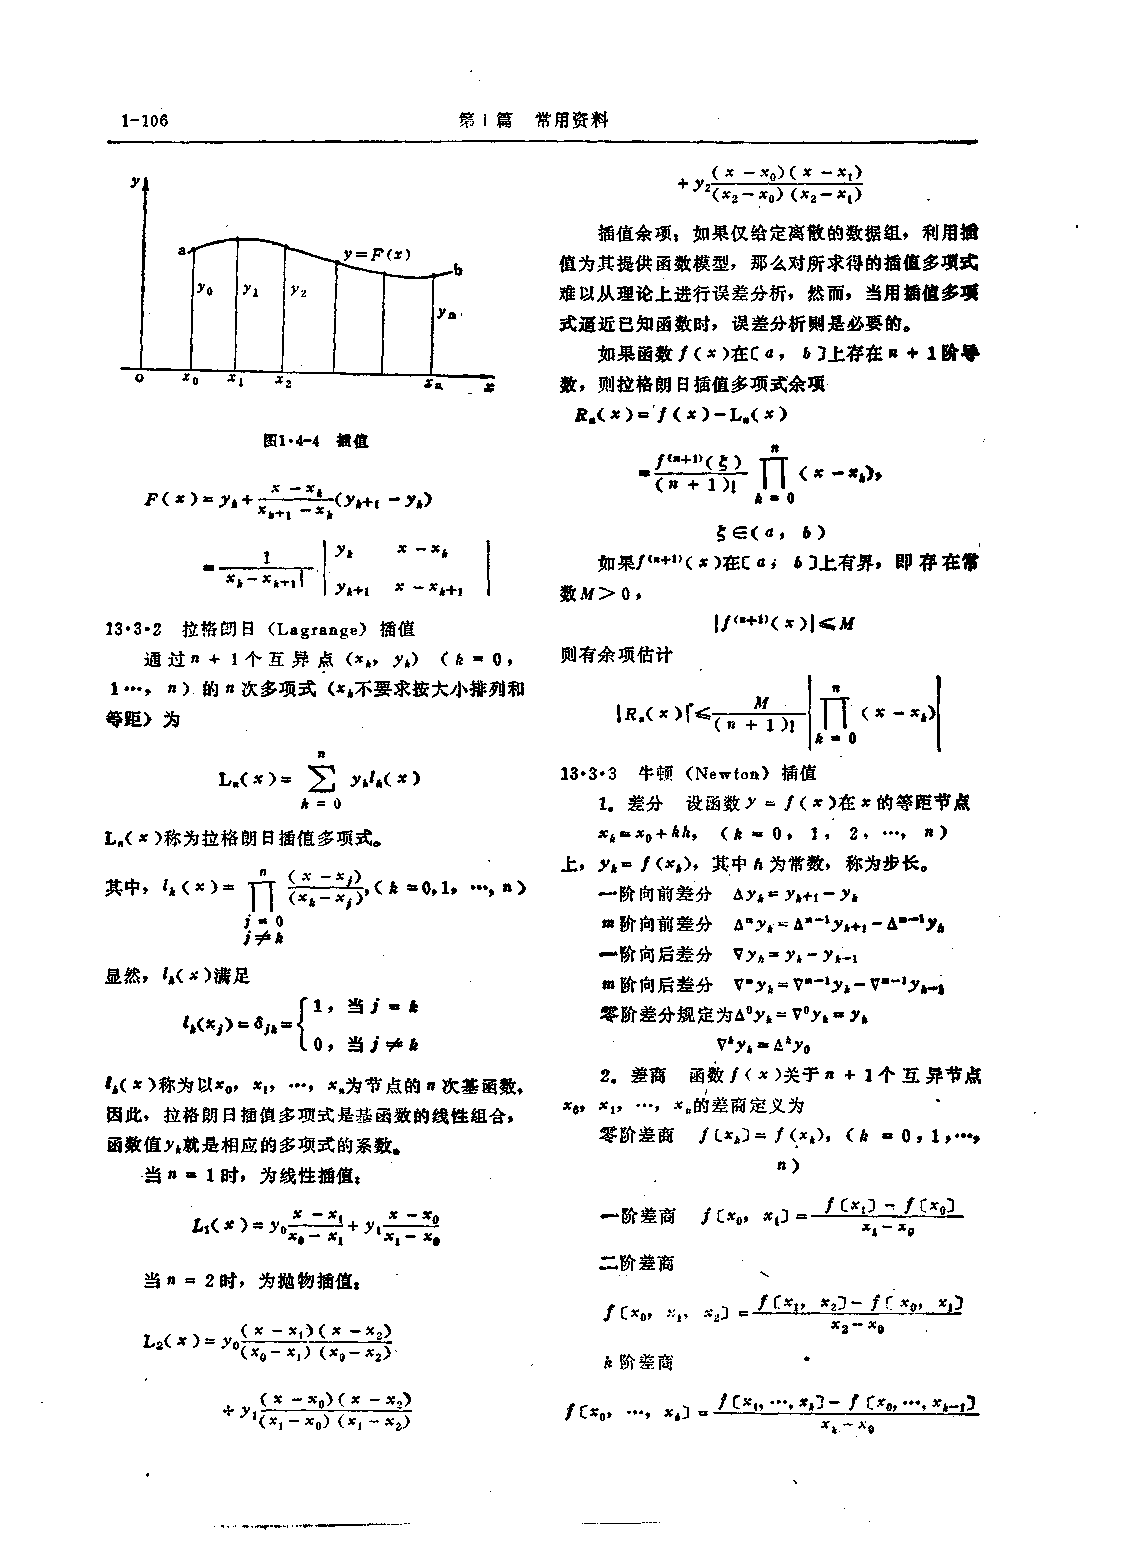 1-106
第1篇 常用资料
y
a
y=F(x)
b
y₀
y₁
y₂
yₙ
o
x₀
x₁
x₂
xₙ
x
图1·4-4 插值
F(x)=yₖ+(x-xₖ)/(xₖ₊₁-xₖ)(yₖ₊₁-yₖ)
=1/(xₖ-xₖ₊₁)|yₖ x-xₖ
yₖ₊₁ x-xₖ₊₁|
13·3·2 拉格朗日（Lagrange）插值
通过n+1个互异点（xₖ，yₖ）（k=0，
1…，n）的n次多项式（xₖ不要求按大小排列和
等距）为
Lₙ(x)=∑ₖ₌₀ⁿ yₖlₖ(x)
Lₙ(x)称为拉格朗日插值多项式。
其中，lₖ(x)=∏ⁿ (x-xⱼ)/(xₖ-xⱼ)，(k=0,1，…,n)
j=0
j≠k
显然，lₖ(x)满足
lₖ(xⱼ)=δⱼₖ={1，当j=k
0，当j≠k
lₖ(x)称为以x₀，x₁，…，xₙ为节点的n次基函数，
因此，拉格朗日插值多项式是基函数的线性组合，
函数值yₖ就是相应的多项式的系数。
当n=1时，为线性插值：
L₁(x)=y₀(x-x₁)/(x₀-x₁)+y₁(x-x₀)/(x₁-x₀)
当n=2时，为抛物插值：
L₂(x)=y₀(x-x₁)(x-x₂)/(x₀-x₁)(x₀-x₂)
+y₁(x-x₀)(x-x₂)/(x₁-x₀)(x₁-x₂)
+y₂(x-x₀)(x-x₁)/(x₂-x₀)(x₂-x₁)
插值余项：如果仅给定离散的数据组，利用插
值为其提供函数模型，那么对所求得的插值多项式
难以从理论上进行误差分析，然而，当用插值多项
式逼近已知函数时，误差分析则是必要的。
如果函数f(x)在〔a，b〕上存在n+1阶导
数，则拉格朗日插值多项式余项
Rₙ(x)=f(x)-Lₙ(x)
=f⁽ⁿ⁺¹⁾(ξ)/(n+1)! ∏ₖ₌₀ⁿ (x-xₖ)，
ξ∈(a，b)
如果f⁽ⁿ⁺¹⁾(x)在〔a，b〕上有界，即存在常
数M>0，
|f⁽ⁿ⁺¹⁾(x)|≤M
则有余项估计
|Rₙ(x)|≤M/(n+1)! |∏ₖ₌₀ⁿ (x-xₖ)|
13·3·3 牛顿（Newton）插值
1。差分 设函数y=f(x)在x的等距节点
xₖ=x₀+kh，（k=0，1，2，…，n）
上，yₖ=f(xₖ)，其中h为常数，称为步长。
一阶向前差分 Δyₖ=yₖ₊₁-yₖ
m阶向前差分 Δᵐyₖ=Δᵐ⁻¹yₖ₊₁-Δᵐ⁻¹yₖ
一阶向后差分 ∇yₖ=yₖ-yₖ₋₁
m阶向后差分 ∇ᵐyₖ=∇ᵐ⁻¹yₖ-∇ᵐ⁻¹yₖ₋₁
零阶差分规定为Δ⁰yₖ=∇⁰yₖ=yₖ
∇ᵏyₖ=Δᵏy₀
2。差商 函数f(x)关于n+1个互异节点
x₀，x₁，…，xₙ的差商定义为
零阶差商 f〔xₖ〕=f(xₖ)，（k=0，1，…，
n）
一阶差商 f〔x₀，x₁〕=(f〔x₁〕-f〔x₀〕)/(x₁-x₀)
二阶差商
f〔x₀，x₁，x₂〕=(f〔x₁，x₂〕-f〔x₀，x₁〕)/(x₂-x₀)
k阶差商
f〔x₀，…，xₖ〕=(f〔x₁，…，xₖ〕-f〔x₀，…，xₖ₋₁〕)/(xₖ-x₀)